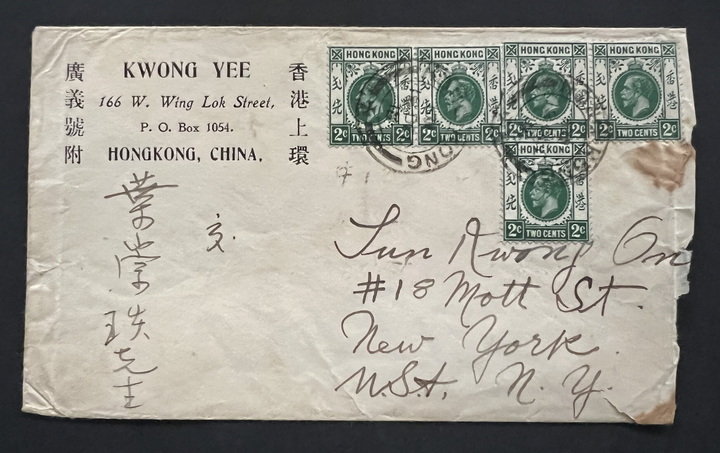 KWONG YEE
166 W. Wing Lok Street,
P. O. Box 1054.
HONGKONG, CHINA.
香港上環
廣義號附
HONG KONG
香港
2c TWO CENTS 2c
HONG KONG
香港
2c TWO CENTS 2c
HONG KONG
香港
2c TWO CENTS 2c
HONG KONG
香港
2c TWO CENTS 2c
HONG KONG
香港
2c TWO CENTS 2c
交
先生
Sun Kwong On
#18 Mott St.
New York.
U.S.A. N.Y.